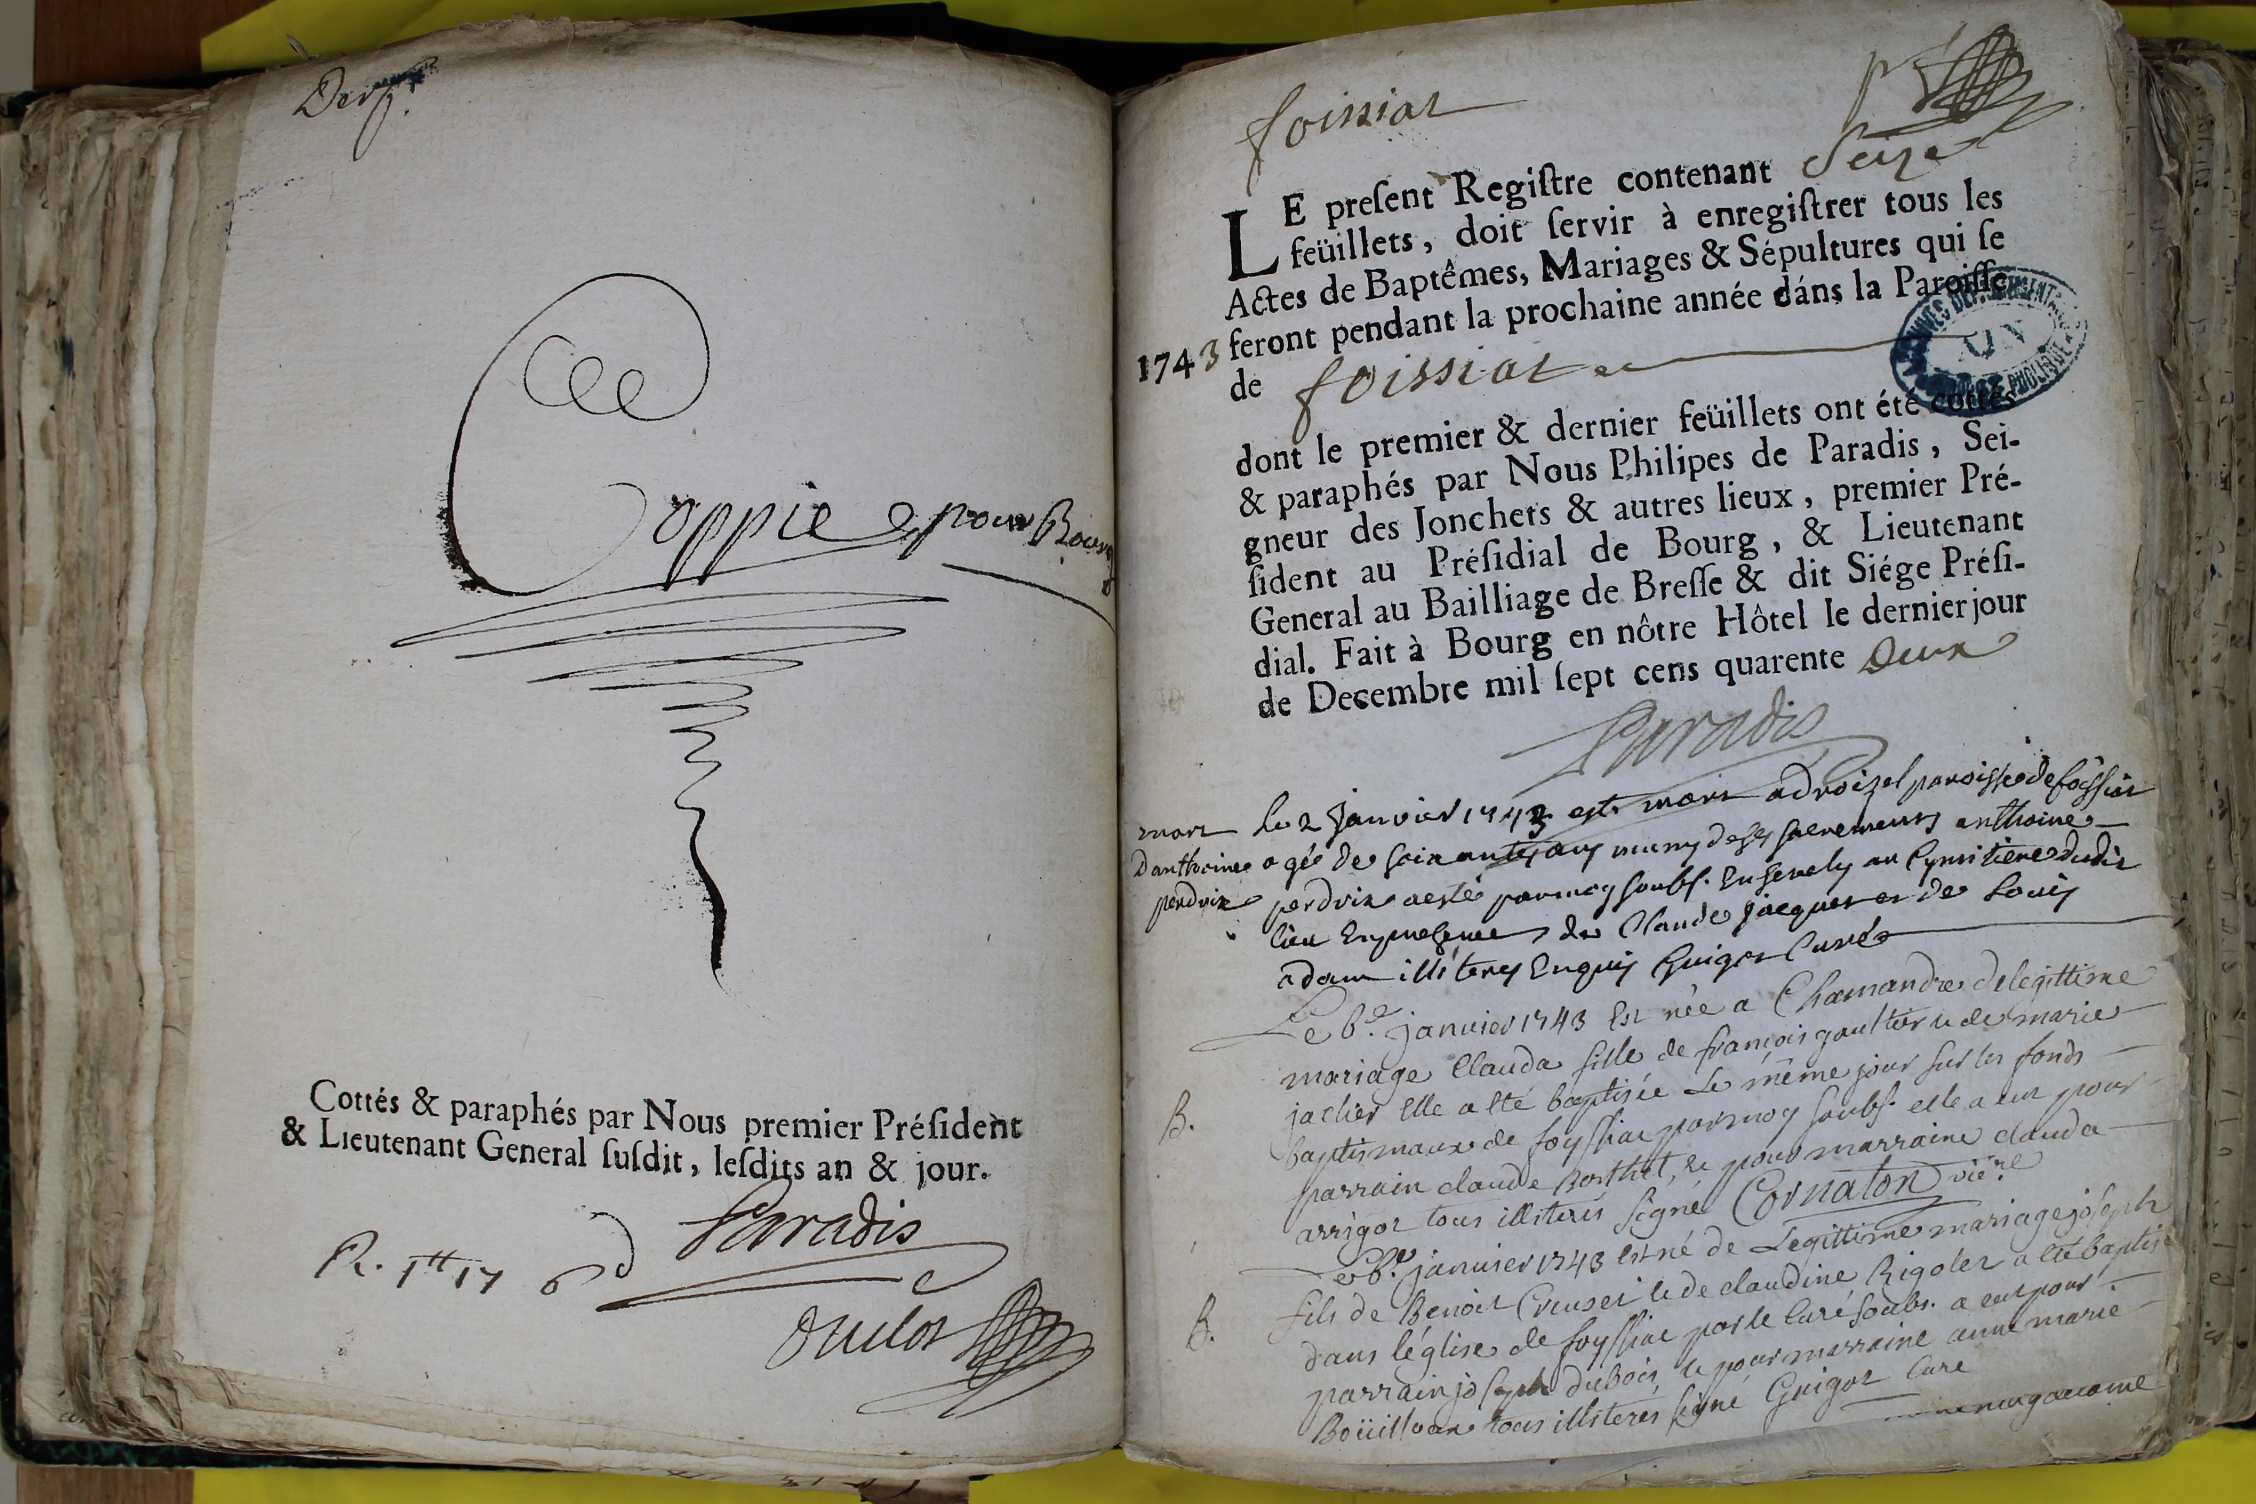 Coppie pour Bourg
Cottés & paraphés par Nous premier Préſident
& Lieutenant General ſuſdit, leſdits an & jour.
Paradis
R. 1tt 17
foissiat
LE preſent Regiſtre contenant Seize
feüillets, doit ſervir à enregiſtrer tous les
Actes de Baptêmes, Mariages & Sépultures qui ſe
feront pendant la prochaine année dáns la Paroiſſe
1743
de foissiat
dont le premier & dernier feüillets ont été cottés
& paraphés par Nous Philipes de Paradis, Sei-
gneur des Jonchets & autres lieux, premier Pré-
ſident au Préſidial de Bourg, & Lieutenant
General au Bailliage de Breſſe & dit Siége Préſi-
dial. Fait à Bourg en nôtre Hôtel le dernier jour
de Decembre mil ſept cens quarente Deux
Paradis
mort
Danthoine
perdrix
Le 2 Janvier 1743 est mort a droizel paroisse de foissiat
agé de soixante ans muny de ses sacremens anthoine
perdrix a esté par moy soubs. Ensevely au Cymitiere dudit
lieu En presence de Claude Jacquet et de Louis
adam illiterez Enquis Guigot Curé
Le 6e janvier 1743 Est née a Chamandre de legittime
mariage Clauda fille de françois gaultier et de marie
B.
jaclier Elle a eté baptisée Le même jour sur les fonds
baptismaux de foyssiat par moy soubs. elle a eut pour
parrain claude Berthet, et pour marraine clauda
arrigot tous illiterés Signé Cornaton vic.re
Le 6e janvier 1743 Est né de Legittime mariage joseph
fils de Benoit Creuset et de claudine Rigolet a eté baptisé
B.
dans léglise de foyssiat par le Curé soubs. a eut pour
parrain joseph dubois, et pour marraine anne marie
Boüilloux tous illiterés signé Guigot Curé